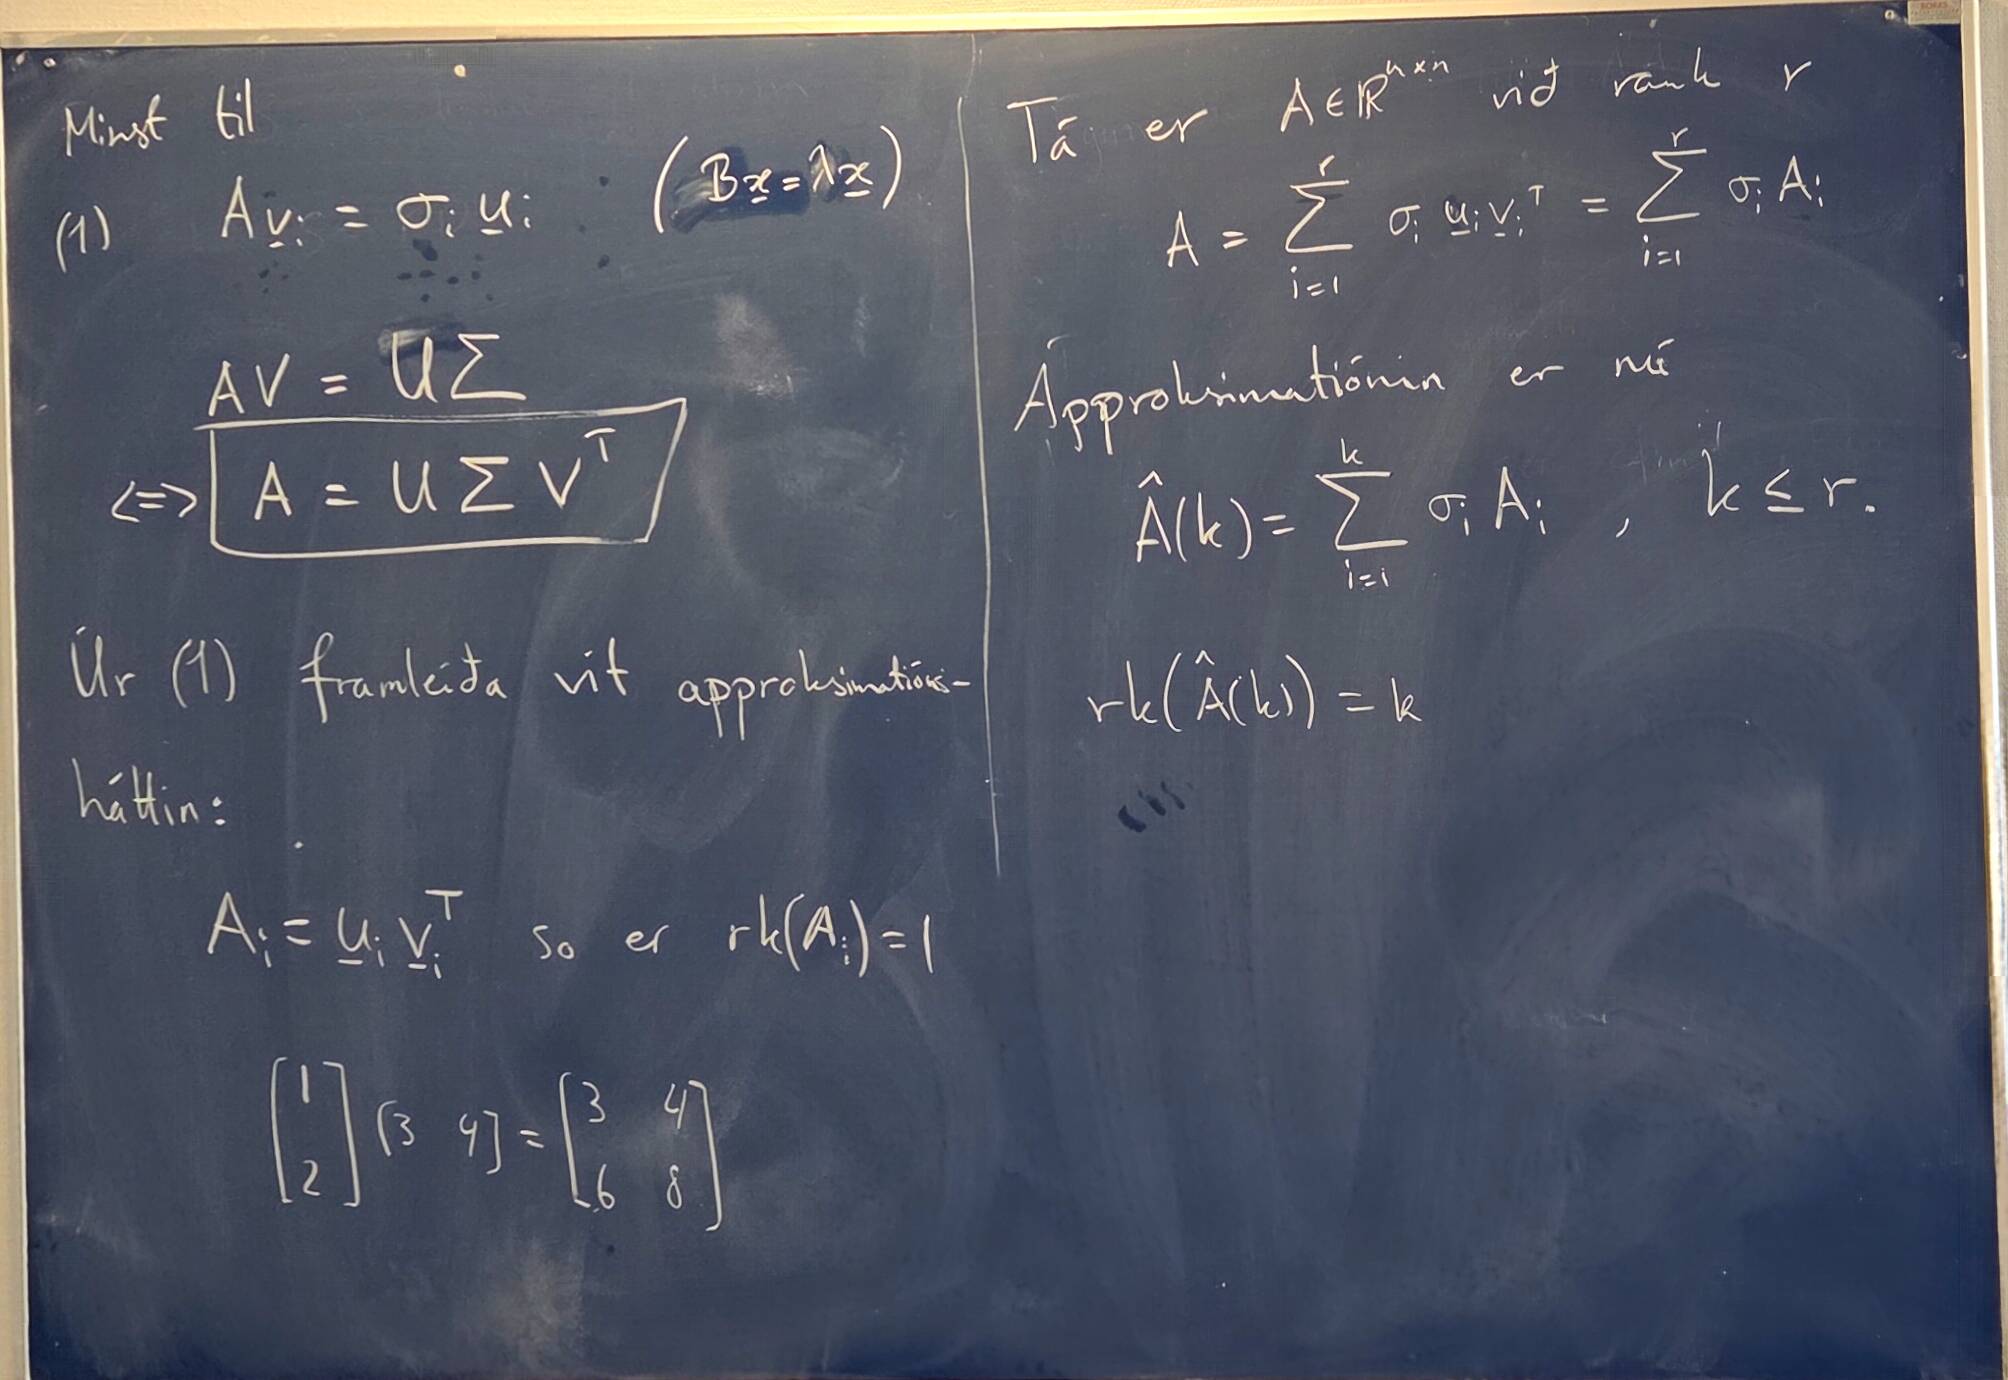 Minst til
(1) A v̲ᵢ = σᵢ u̲ᵢ (B x̲ = λ x̲)
AV = UΣ
<=> A = U Σ Vᵀ
Úr (1) framleiða vit approksimatións-
háttin:
Aᵢ = u̲ᵢ v̲ᵢᵀ so er rk(Aᵢ) = 1
[1
2] [3 4] = [3 4
6 8]
Tá er A ∈ ℝⁿˣⁿ við rank r
A = ∑_{i=1}^{r} σᵢ u̲ᵢ v̲ᵢᵀ = ∑_{i=1}^{r} σᵢ Aᵢ
Approksimatiónin er nú
Â(k) = ∑_{i=1}^{k} σᵢ Aᵢ , k ≤ r.
rk(Â(k)) = k